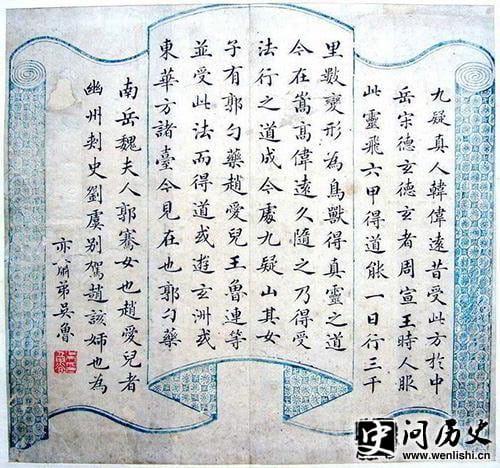 九疑真人韓偉遠昔受此方於中
岳宗德玄德玄者周宣王時人服
此靈飛六甲得道能一日行三千
里數變形為鳥獸得真靈之道
今在嵩高偉遠久隨之乃得受
法行之道成今處九疑山其女
子有郭勺藥趙愛兒王魯連等
並受此法而得道或遊玄洲或
東華方諸臺今見在也郭勺藥
南岳魏夫人郭騫女也趙愛兒者
幽州刺史劉虞別駕趙該姊也為
亦八弟吳魯
问历史
www.wenlishi.cn